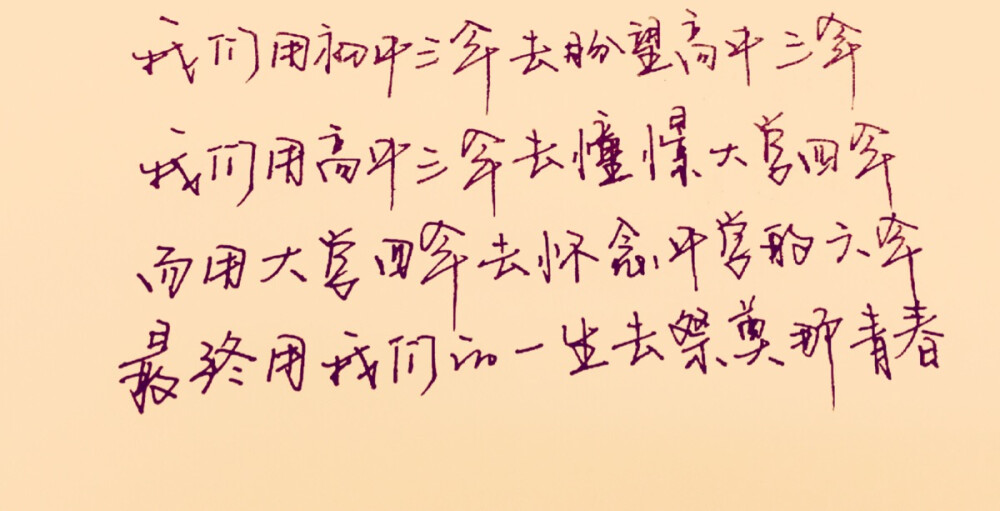 我们用初中三年去盼望高中三年
我们用高中三年去憧憬大学四年
而用大学四年去怀念中学的六年
最终用我们的一生去祭奠那青春